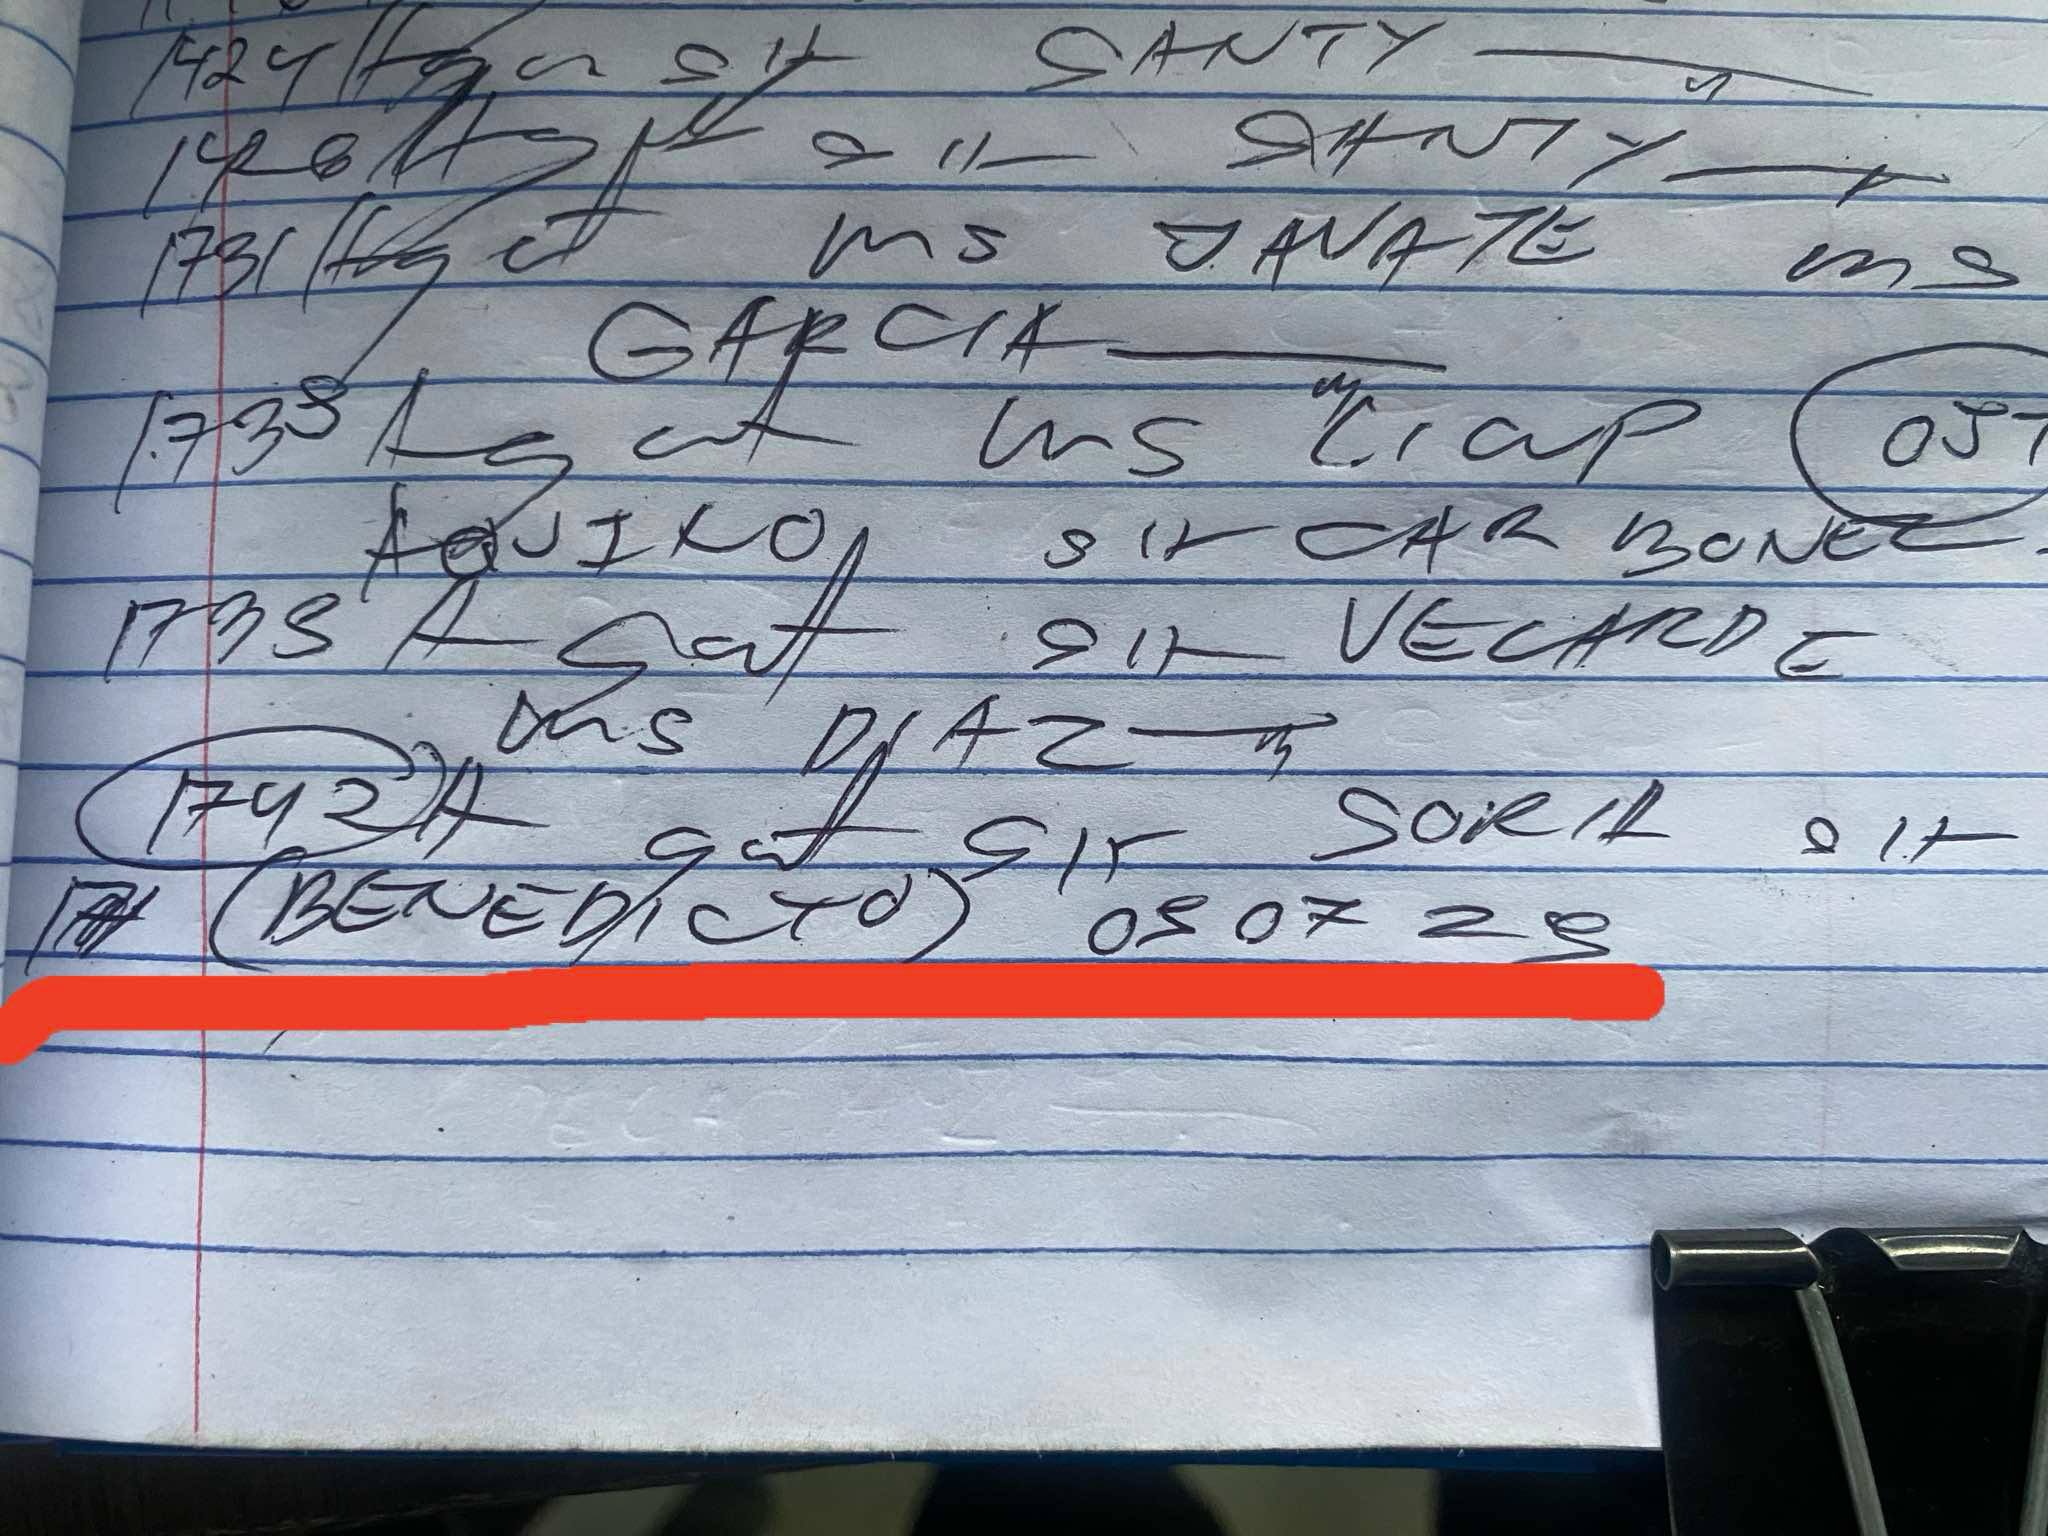 1424 sir SANTY
1428 sir SANTY
1731 Agat ms JANATE ms
GARCIA
1735 Agat ms Liap OST
AQUINO sir CARBONEL
1738 Agat sir VELARDE
ms DIAZ
1742 Agat sir SORIA sir
(BENEDICTO) 090729